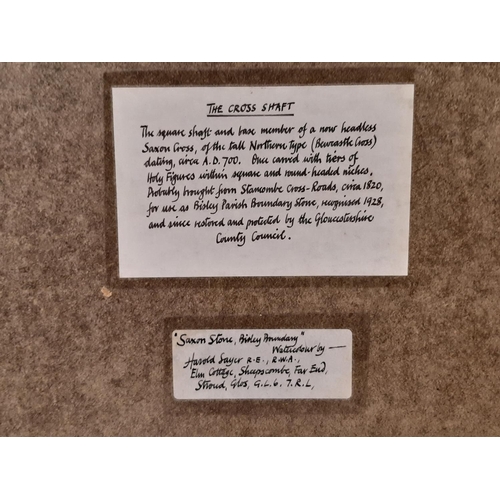 THE CROSS SHAFT
The square shaft and base member of a now headless
Saxon Cross, of the tall Northern Type (Bewcastle Cross)
dating, circa A.D. 700. Once carved with tiers of
Holy Figures within square and round-headed niches,
Probably brought from Stancombe Cross-Roads, circa 1820,
for use as Bisley Parish Boundary Stone, recognised 1928,
and since restored and protected by the Gloucestershire
County Council.
"Saxon Stone, Bisley Boundary"
Watercolour by —
Harold Sayer R.E., R.W.A.,
Elm Cottage, Sheepscombe, Far End,
Stroud, Glos, G.L.6. 7.R.L,